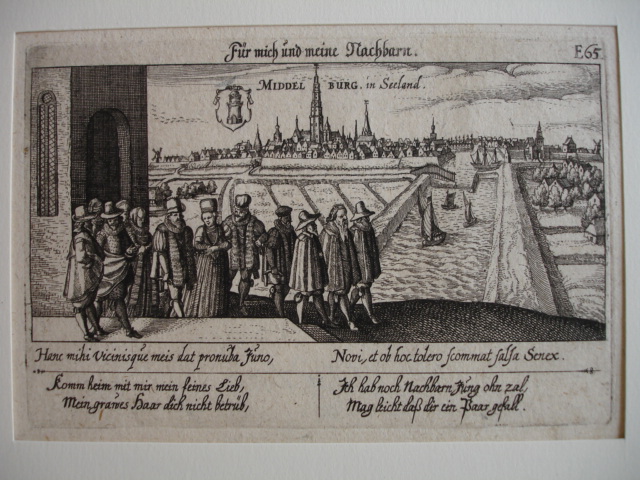 Für mich und meine Nachbarn.
E65
MIDDEL BURG. in Seeland.
Hanc mihi Vicinisque meis dat pronuba Juno,
Novi, et ob hoc tolero scommat salsa Senex.
Komm heim mit mir mein feines Lieb,
Mein grawes Haar dich nicht betrüb,
Ich hab noch Nachbarn Jung ohn zal,
Mag leicht daß dir ein Paar gefall.